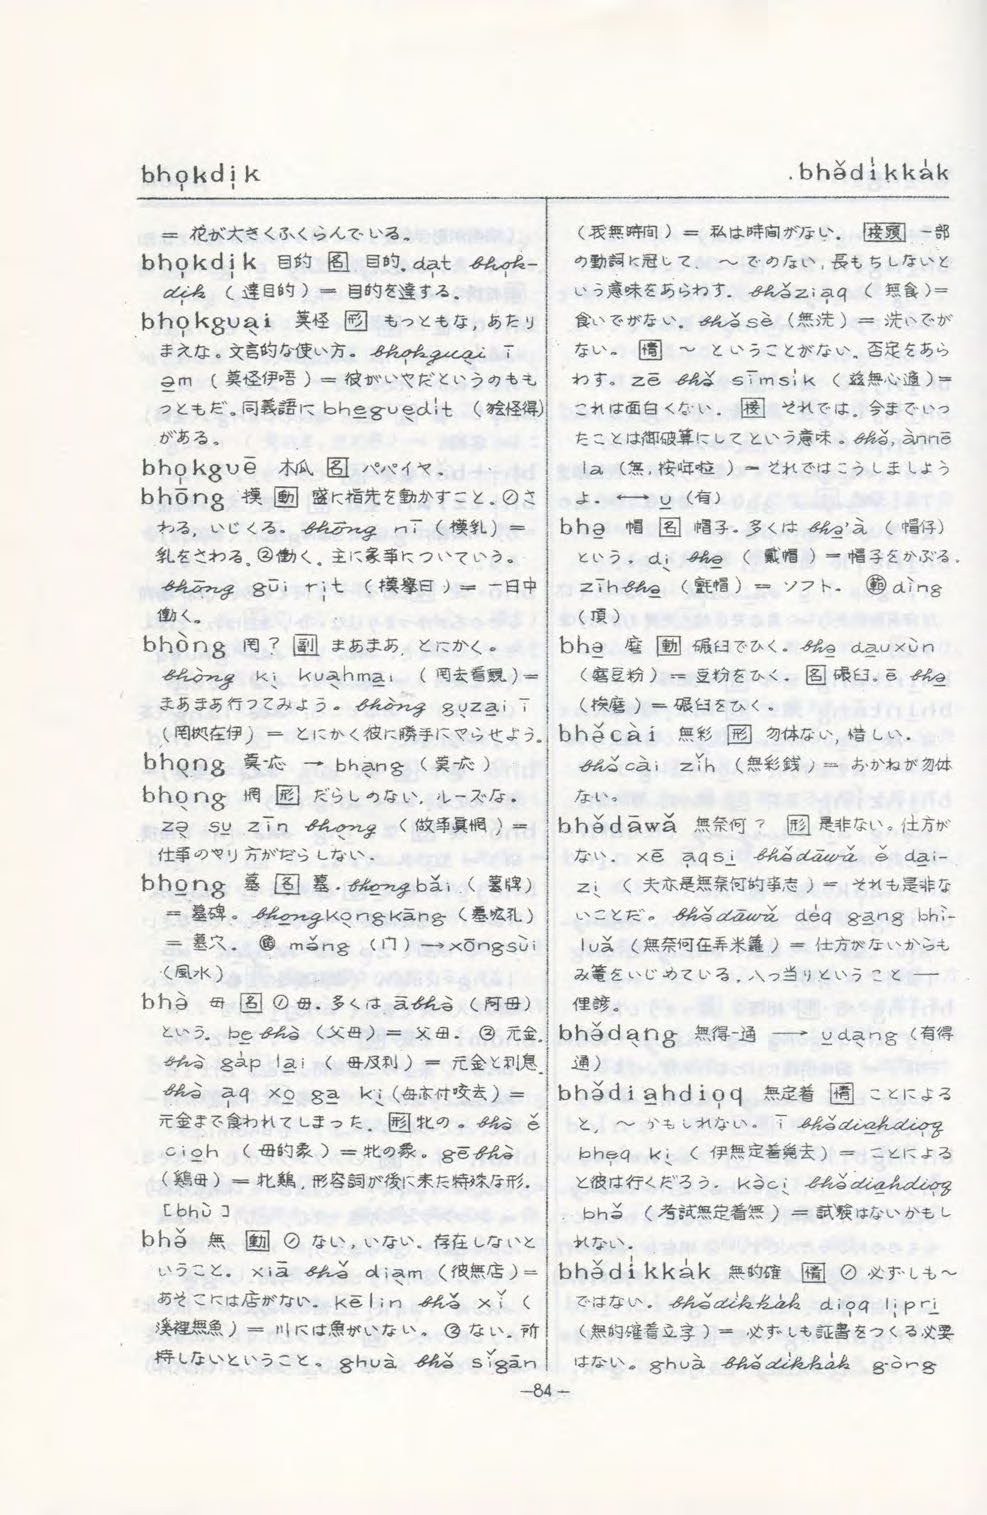 bho̍kdi̍k
bhə̆di̍kka̍k
= 花が大きくふくらんでいる。
bho̍kdi̍k 目的 名 目的。da̍t bho̍k-
di̍k (達目的) = 目的を達する。
bho̍kguại 莫怪 形 もっともな, あたり
まえな。文言的な使い方。bho̍kguại ī
ə̠m (莫怪伊唔) = 彼がいやだというのもも
っともだ。同義語に bhe̠gue̠di̍t (袂怪得)
がある。
bho̍kguē 木瓜 名 パパイヤ。
bhōng 摸 動 盛に指先を動かすこと。①さ
わる, いじくる。bhōng nī (摸乳) =
乳をさわる。②働く。主に家事についていう。
bhōng gūi ri̍t (摸擧日) = 一日中
働く。
bhòng 罔? 副 まあまあ, とにかく。
bhòng kị kuạhmại (罔去看覓) =
まあまあ行ってみよう。bhòng gu̠zai ī
(罔抅在伊) = とにかく彼に勝手にやらせよう。
bho̠ng 莫·怷 → bha̠ng (莫·怷)
bhọng 惘 形 だらしのない, ルーズな。
zə̣ su̠ zīn bhọng (做事眞惘) =
仕事のやり方がだらしない。
bho̠ng 墓 名 墓。bho̠ngbăi (墓牌)
= 墓碑。bho̠ngkōngkāng (墓壙孔)
= 墓穴。 mə̆ng (门) → xōngsùi
(風水)
bhə̀ 母 名 ①母。多くは ābhə̀ (阿母)
という。be̠bhə̀ (父母) = 父母。②元金。
bhə̀ ga̍p la̠i (母及利) = 元金と利息。
bhə̀ a̠q xo̠ ga̠ kị (母亦付咬去) =
元金まで食われてしまった。形 牝の。bhə̀ ĕ
cio̠h (母的象) = 牝の象。gēbhə̀
(鷄母) = 牝鶏, 形容詞が後に来た特殊な形。
[bhù]
bhə̆ 無 動 ①ない, いない。存在しないと
いうこと。xiā bhə̆ diạm (彼無店) =
あそこには店がない。kēlin bhə̆ xĭ (
溪裡無魚) = 川には魚がいない。②ない。所
持しないということ。ghuà bhə̆ sĭgān
(我無時間) = 私は時間がない。 接頭 一部
の動詞に冠して, ～でのない, 長もちしないと
いう意味をあらわす。bhə̆zia̠q (無食) =
食いでがない。bhə̆sè (無洗) = 洗いでが
ない。 情 ～ということがない, 否定をあら
わす。zē bhə̆ sīmsi̍k (玆無心適) =
これは面白くない。 接 それでは。今までいっ
たことは御破算にしてという意味。bhə̆, ànnē
la (無, 按哖啦) = それではこうしましよう
よ。←→ u̠ (有)
bhə̠ 帽 名 帽子。多くは bhə̠'à (帽仔)
という。dị bhə̠ (戴帽) = 帽子をかぶる。
zīhbhə̠ (氈帽) = ソフト。 dìng
(頂)
bhə̠ 磨 動 碾臼でひく。bhə̠ da̠uxùn
(磨豆粉) = 豆粉をひく。名 碾臼。ē bhə̠
(挨磨) = 碾臼をひく。
bhə̆cài 無彩 形 勿体ない, 惜しい。
bhə̆cài zĭh (無彩錢) = おかねが勿体
ない。
bhə̆dāwă 無奈何? 形 是非ない。仕方が
ない。xē a̠qsi̠ bhə̆dāwă ĕ da̠i-
zị (夫亦是無奈何的事志) = それも是非な
いことだ。bhə̆dāwă de̍q ga̠ng bhì-
luă (無奈何在弄米籮) = 仕方がないからも
み篭をいじめている, 八つ当りということ ―
俚諺。
bhə̆dạng 無得·通 → u̠dạng (有得
通)
bhə̆dia̠hdio̠q 無定着 情 ことによる
と, ～かもしれない。ī bhə̆dia̠hdio̠q
bheq kị (伊無定着覔去) = ことによる
と彼は行くだろう。kə̀cị bhə̆dia̠hdio̠q
bhə̆ (考試無定着無) = 試験はないかもし
れない。
bhə̆di̍kka̍k 無的確 情 ①必ずしも～
ではない。bhə̆di̍kka̍k dio̠q li̠pri̠
(無的確着立字) = 必ずしも証書をつくる必要
はない。ghuà bhə̆di̍kka̍k gòng
—84—